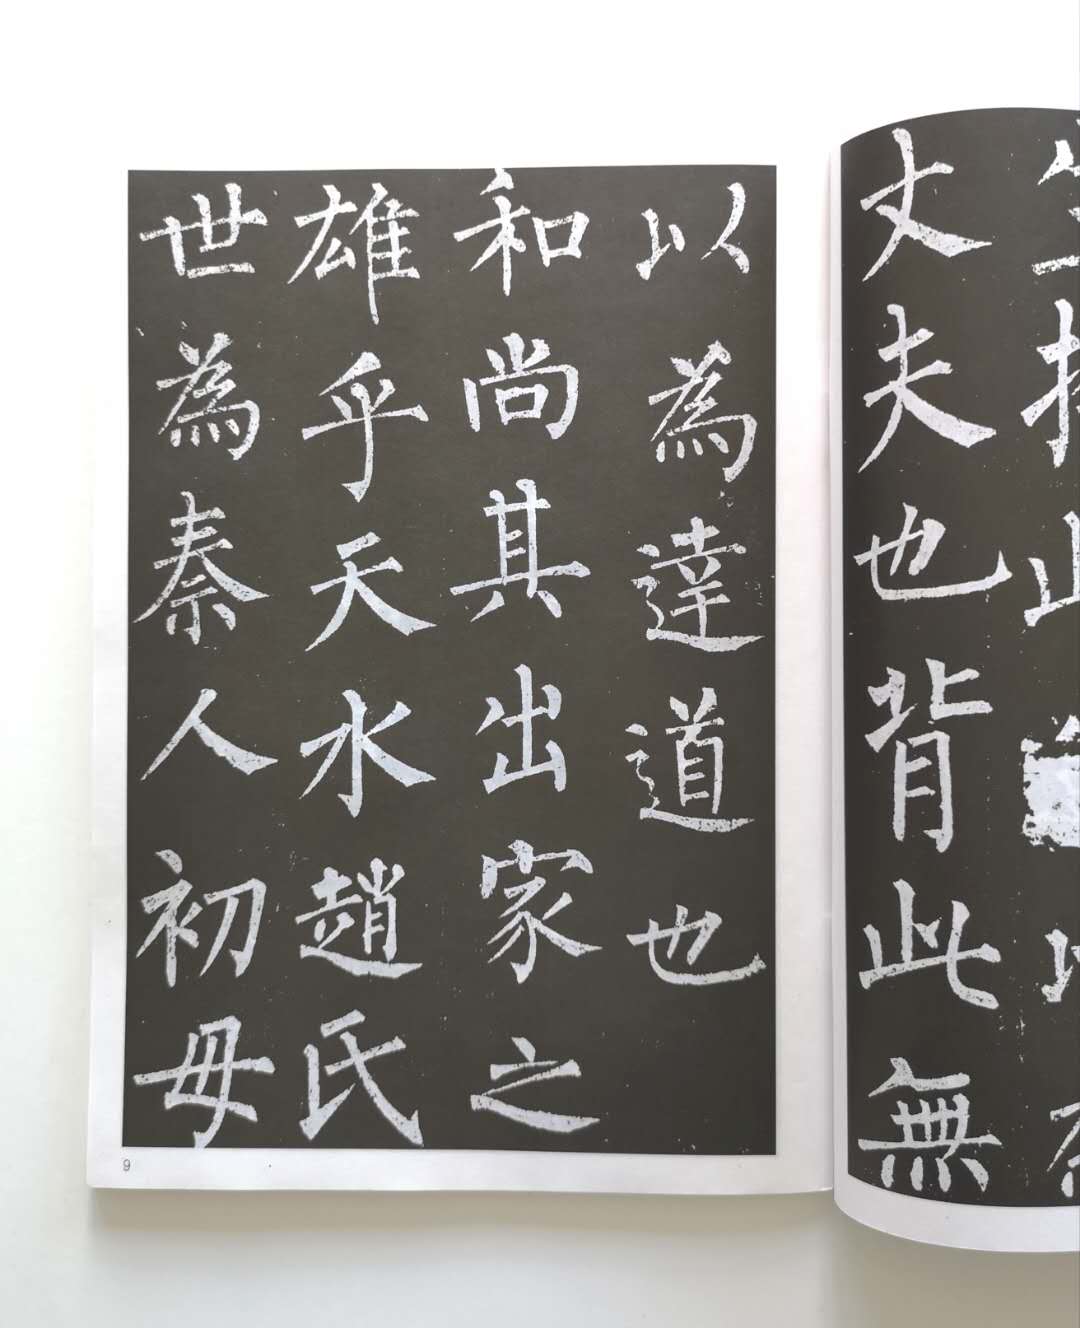 丈夫也背此無
以為達道也
和尚其出家之
雄乎天水趙氏
世為秦人初母
9